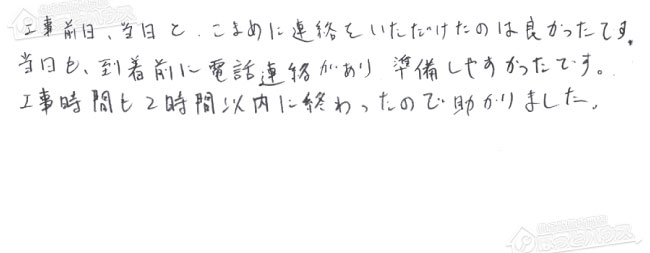 工事前日、当日と、こまめに連絡をいただけたのは良かったです。
当日も、到着前に電話連絡があり 準備しやすかったです。
工事時間も2時間以内に終わったので助かりました。